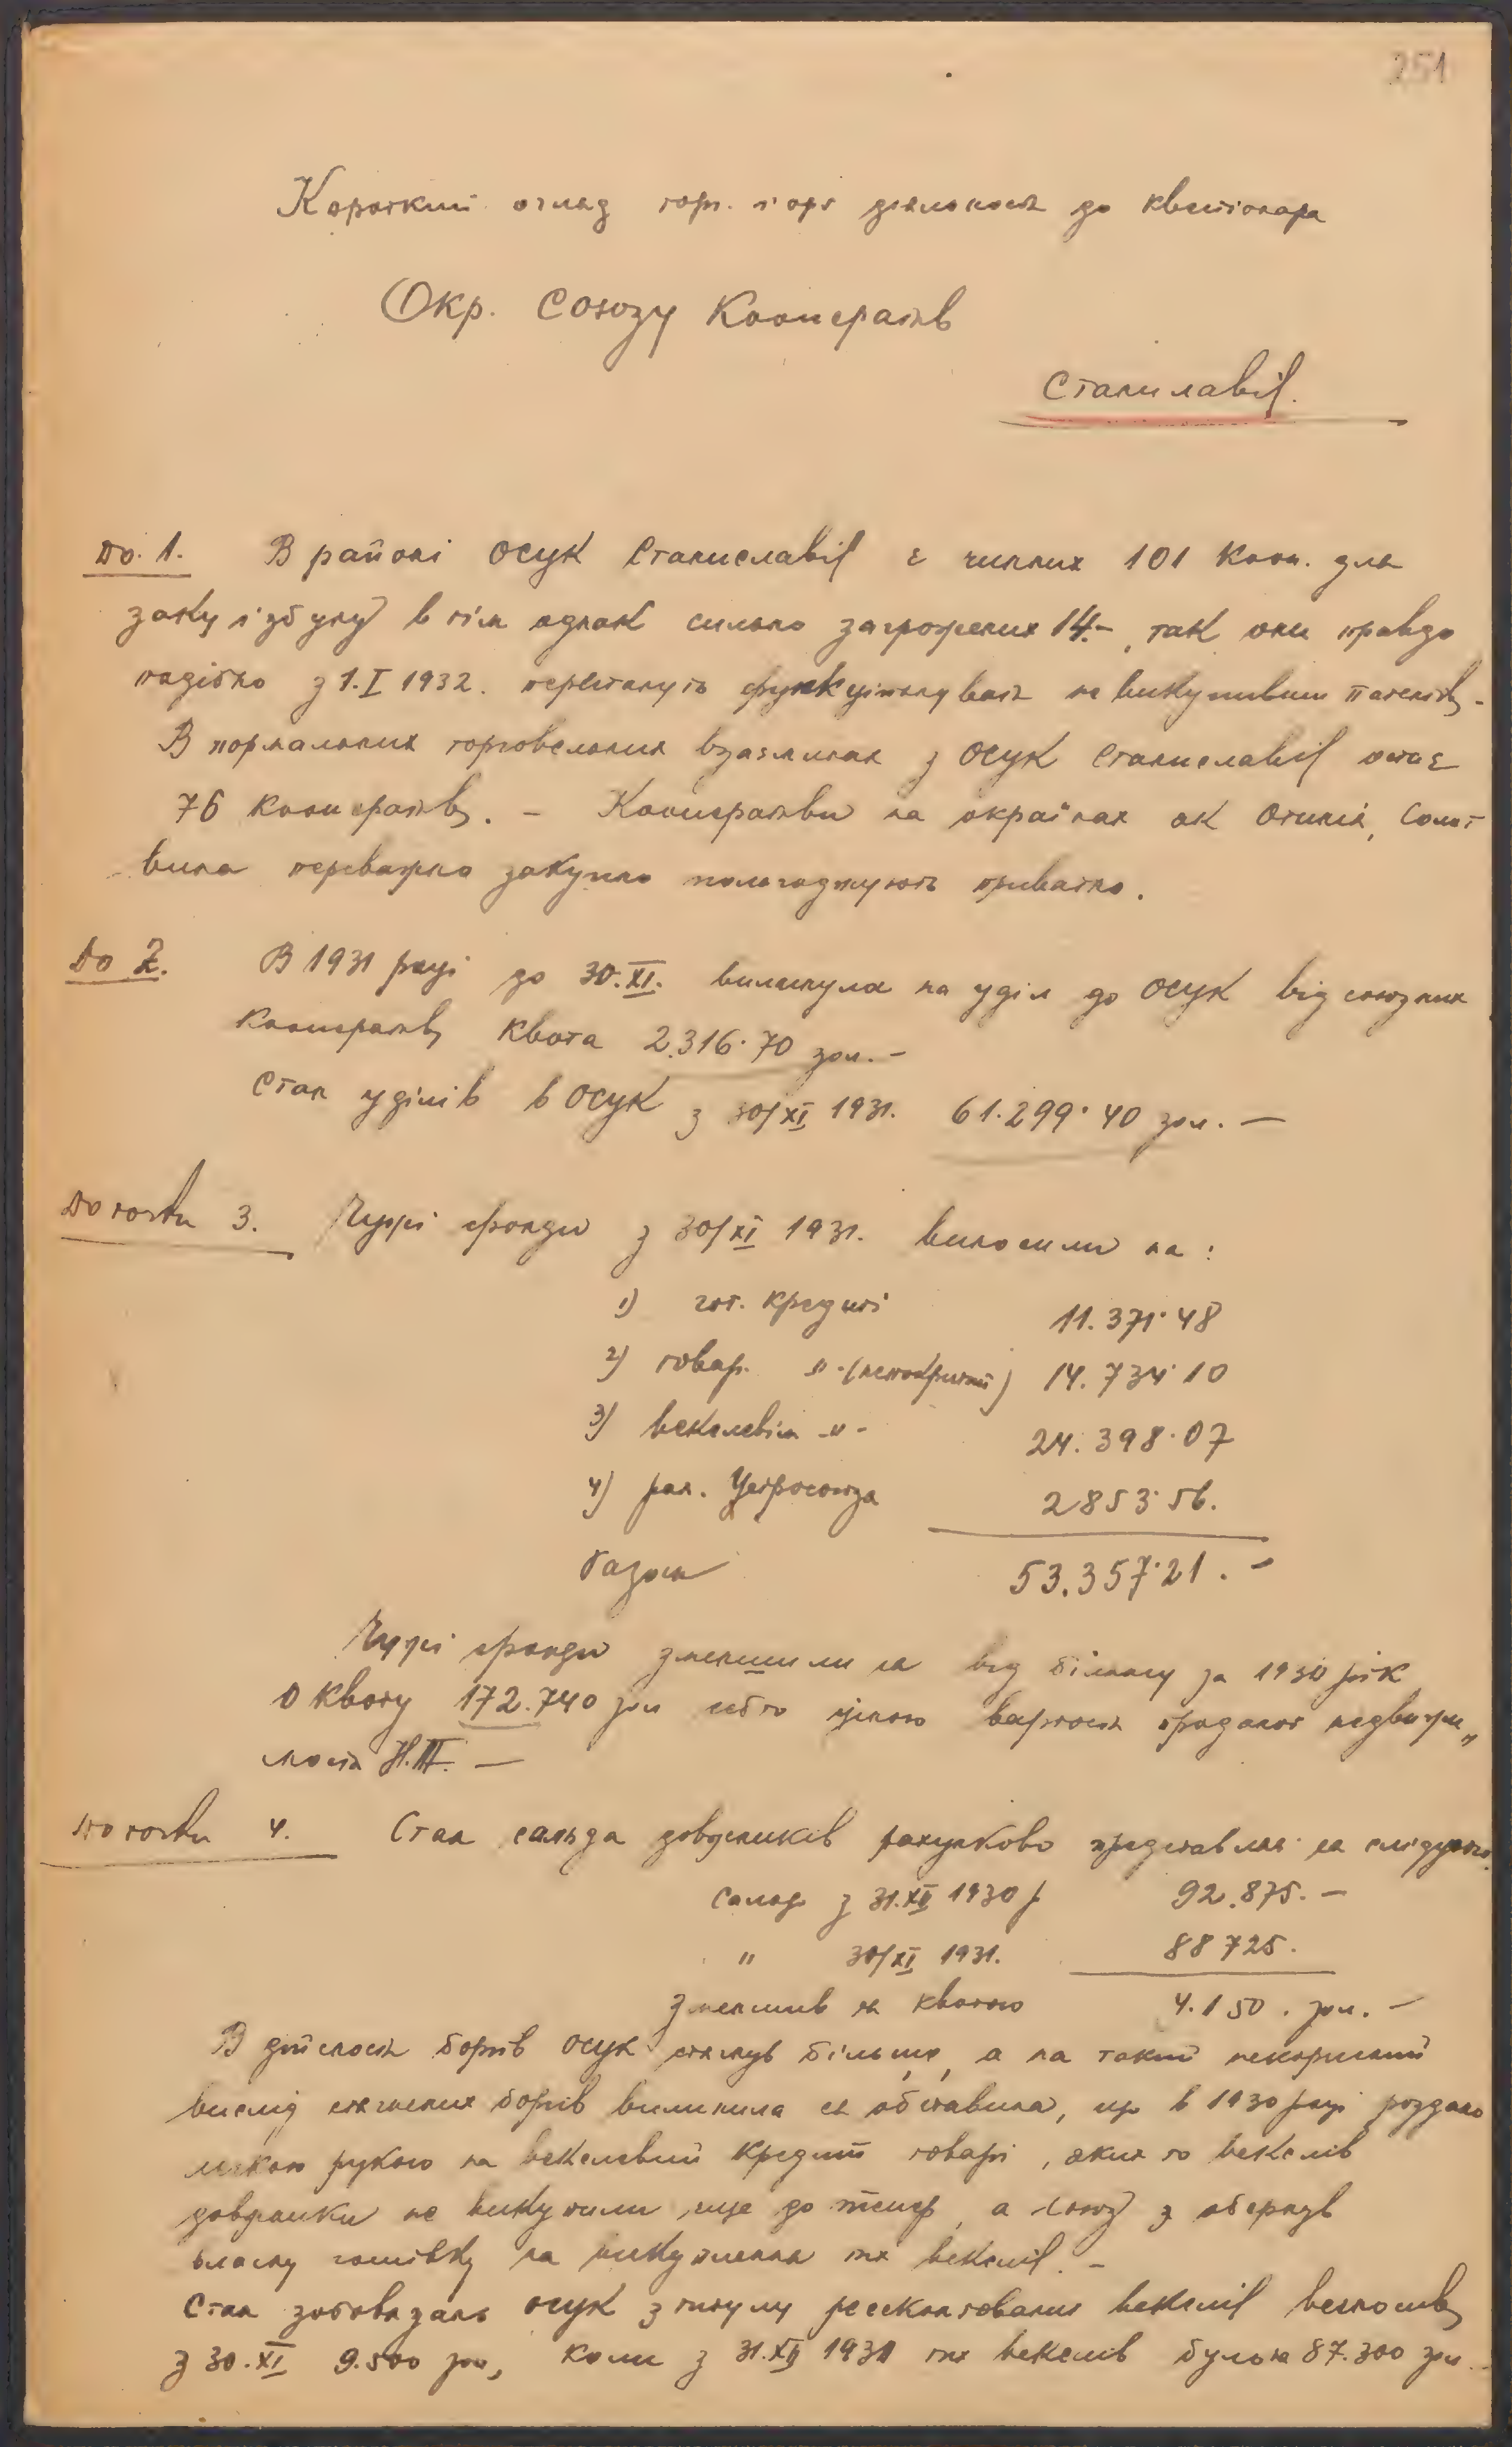 251
Короткий огляд торг. і орг. діяльности до квестіонара
Окр. Союзу Кооператив
Станиславів.
До. 1. В районі ОСУК Станиславів є чинних 101 Кооп. для
заку і збуну в тім однак сильно загрожених 14.-, так они правдо
подібно з 1.I 1932. перестануть функціонувати не викупивши патентів.-
В нормальних торговельних взаєминах з ОСУК Станиславів остає
76 кооператив. - Кооперативи на окраїнах як Отинія, Солот
вина переважно закупно полагоджують приватно.
До 2. В 1931 році до 30.XI. вплинула на уділ до ОСУК від союзних
кооператив квота 2.316·70 зол. -
Стан уділів в ОСУК з 30/XI 1931. 61.299·40 зол. —
До точки 3. Чужі фонди з 30/XI 1931. виносили на :
1) гот. кредиті 11.371·48
2) товар. -"- (непокритий) 14.734·10
3) векслевім -"- 24.398·07
4) рах. Центросоюза 2853·56.
Разом 53.357·21. -
Чужі фонди зменшили ся від білянсу за 1930 рік
о квоту 172.740 зол себто ціною вартости проданої недвижи„
мости Н.Т. —
До точки 4. Стан сальда довжників рахунково представляє ся слідуючо
сальдо з 31.XII 1930 р 92.875. -
" 30/XI 1931. 88725.
Зменшив ся квотою 4.150. зол. -
В дійсности боргів ОСУК стягнув більше, а на такий некорисний
вислід стягнених боргів вплинула ся обставина, що в 1930 році роздано
легкою рукою на векслевий кредит товарі, яких то векслів
довжники не викупили ще до тепер, а Союз з обернув
власну готівку на викуплення тих векслів. -
Стан зобовязань ОСУК з титулу реесконтованих векслів виносив
з 30.XI 9.500 зол, коли з 31.XII 1930 тих векслів було на 87.300 зол. -